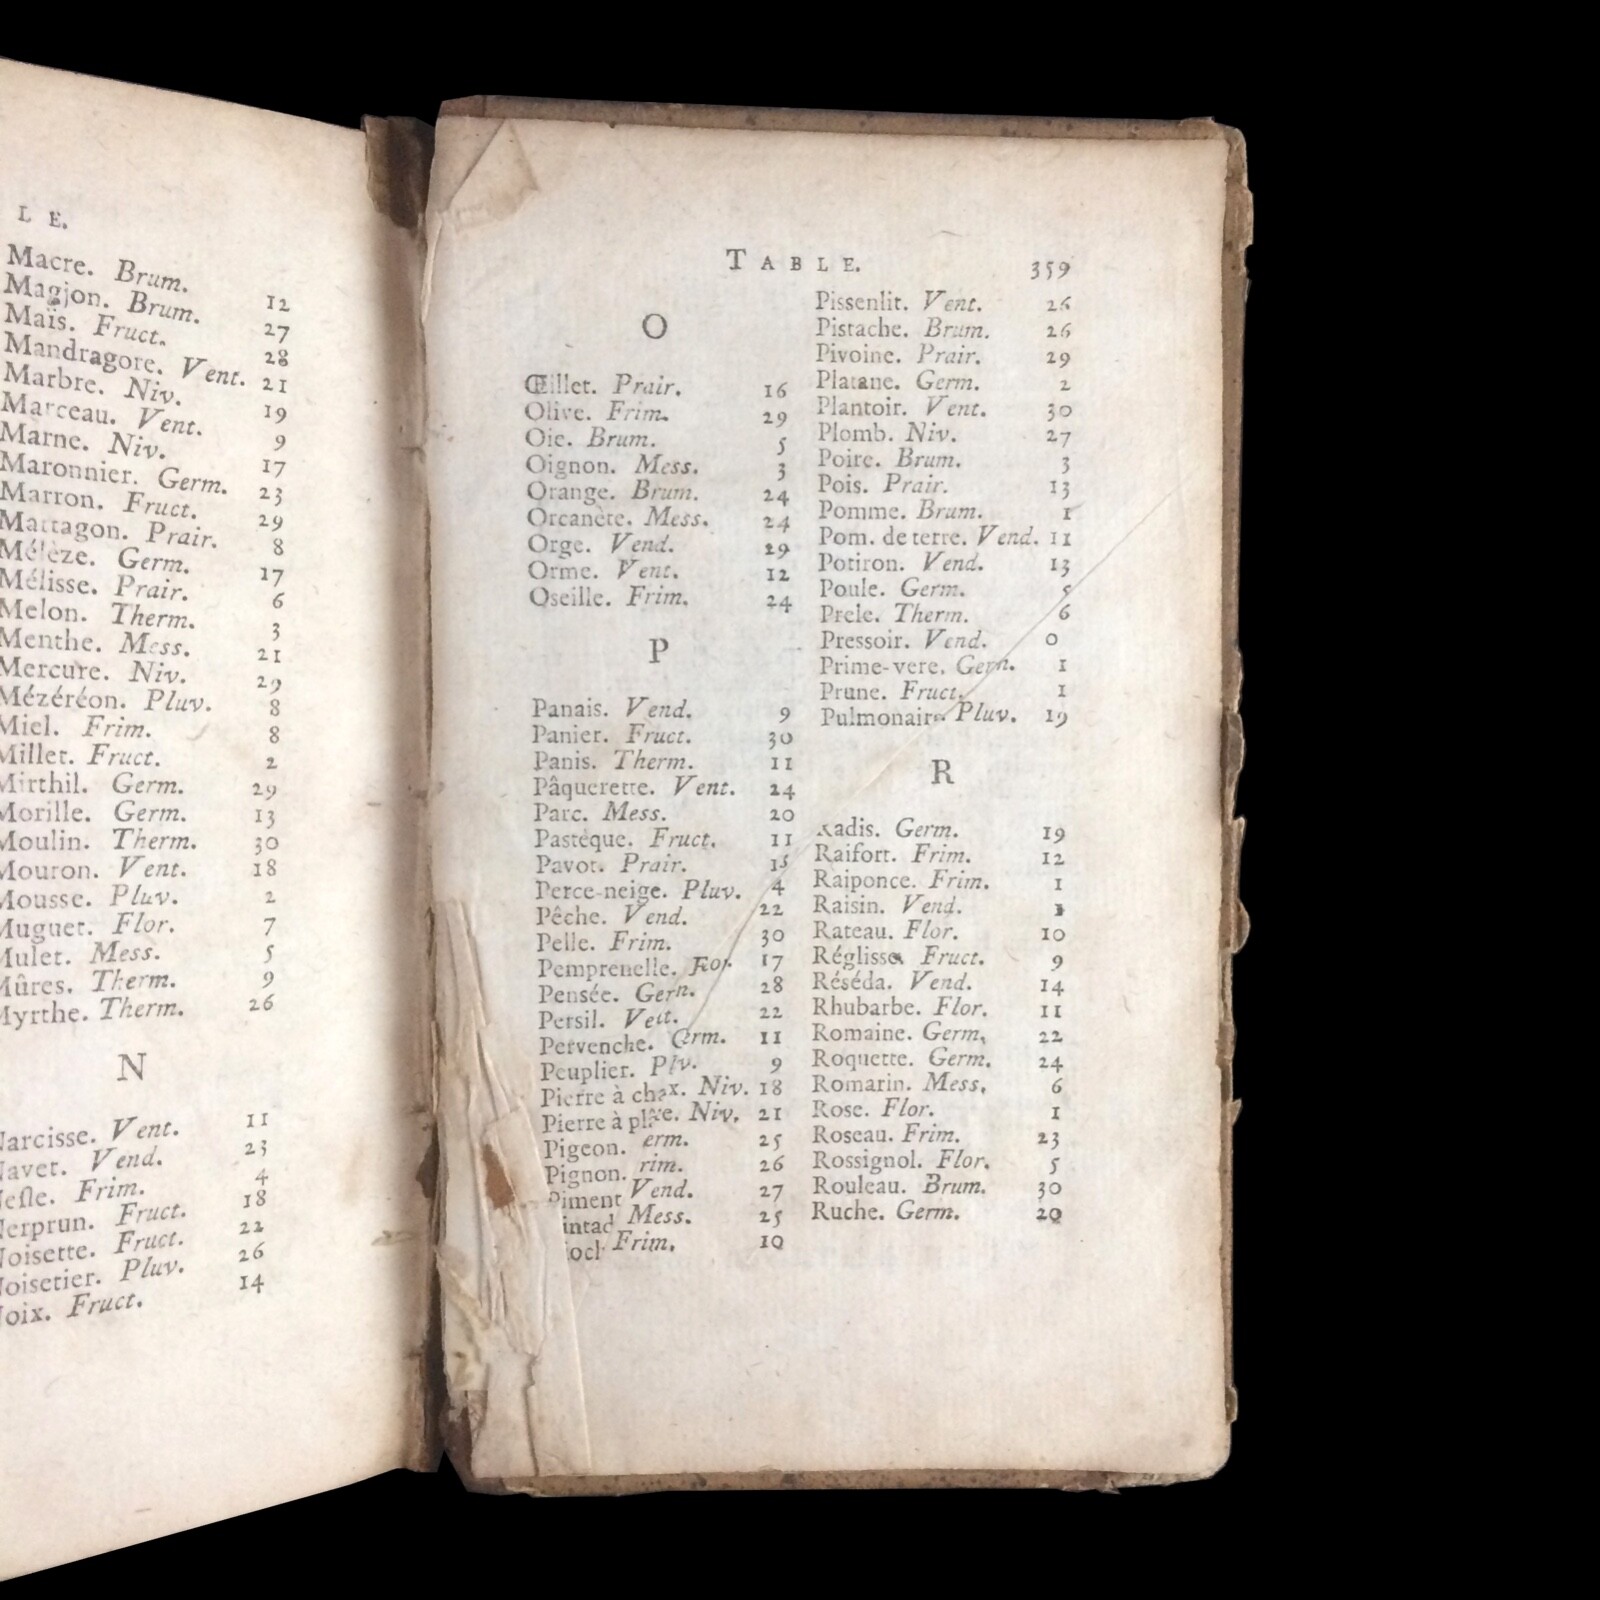 L E.
Macre. Brum. 12
Magjon. Brum. 27
Maïs. Fruct. 28
Mandragore. Vent. 21
Marbre. Niv. 19
Marceau. Vent. 9
Marne. Niv. 17
Maronnier. Germ. 23
Marron. Fruct. 29
Martagon. Prair. 8
Mélèze. Germ. 17
Mélisse. Prair. 6
Melon. Therm. 3
Menthe. Mess. 21
Mercure. Niv. 29
Mézéréon. Pluv. 8
Miel. Frim. 8
Millet. Fruct. 2
Mirthil. Germ. 29
Morille. Germ. 13
Moulin. Therm. 30
Mouron. Vent. 18
Mousse. Pluv. 2
Muguet. Flor. 7
Mulet. Mess. 5
Mûres. Therm. 9
Myrthe. Therm. 26
N
Narcisse. Vent. 11
Navet. Vend. 23
Nefle. Frim. 4
Nerprun. Fruct. 18
Noisette. Fruct. 22
Noisetier. Pluv. 26
Noix. Fruct. 14
TABLE. 359
O
Œillet. Prair. 16
Olive. Frim. 29
Oie. Brum. 5
Oignon. Mess. 3
Orange. Brum. 24
Orcanète. Mess. 24
Orge. Vend. 29
Orme. Vent. 12
Oseille. Frim. 24
P
Panais. Vend. 9
Panier. Fruct. 30
Panis. Therm. 11
Pâquerette. Vent. 24
Parc. Mess. 20
Pastèque. Fruct. 11
Pavot. Prair. 15
Perce-neige. Pluv. 4
Pêche. Vend. 22
Pelle. Frim. 30
Pemprenelle. For. 17
Pensée. Gern. 28
Persil. Vett. 22
Pervenche. Grm. 11
Peuplier. Plv. 9
Pierre à chax. Niv. 18
Pierre à plâte. Niv. 21
Pigeon. erm. 25
Pignon. rim. 26
Piment Vend. 27
intad Mess. 25
ioch Frim. 10
Pissenlit. Vent. 26
Pistache. Brum. 26
Pivoine. Prair. 29
Platane. Germ. 2
Plantoir. Vent. 30
Plomb. Niv. 27
Poire. Brum. 3
Pois. Prair. 13
Pomme. Brum. 1
Pom. de terre. Vend. 11
Potiron. Vend. 13
Poule. Germ. 5
Prele. Therm. 6
Pressoir. Vend. 0
Prime-vere. Gern. 1
Prune. Fruct. 1
Pulmonaire Pluv. 19
R
Radis. Germ. 19
Raifort. Frim. 12
Raiponce. Frim. 1
Raisin. Vend. 1
Rateau. Flor. 10
Réglisse. Fruct. 9
Réséda. Vend. 14
Rhubarbe. Flor. 11
Romaine. Germ. 22
Roquette. Germ. 24
Romarin. Mess. 6
Rose. Flor. 1
Roseau. Frim. 23
Rossignol. Flor. 5
Rouleau. Brum. 30
Ruche. Germ. 20